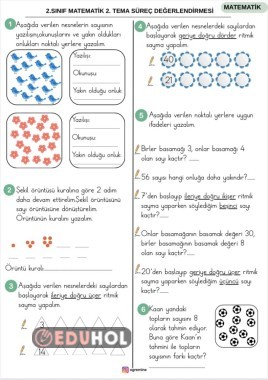 2.SINIF MATEMATİK 2. TEMA SÜREÇ DEĞERLENDİRMESİ
MATEMATİK
1 Aşağıda verilen nesnelerin sayısının
yazılışını,okunuşlarını ve yakın oldukları
onlukları noktalı yerlere yazalım.
Yazılışı
Okunuşu
Yakın olduğu onluk
Yazılışı
Okunuşu
Yakın olduğu onluk
2 Şekil örüntüsü kuralına göre 2 adım
daha devam ettirelim.Şekil örüntüsünü
sayı örüntüsüne dönüştürelim.
Örüntünün kuralını yazalım.
Örüntü kuralı:
3 Aşağıda verilen nesnelerdeki sayılardan
başlayarak ileriye doğru üçer ritmik
sayma yapalım.
3
14
EDUHOL
4 Aşağıda verilen nesnelerdeki sayılardan
başlayarak geriye doğru dörder ritmik
sayma yapalım.
40
21
5 Aşağıda verilen noktalı yerlere uygun
ifadeleri yazalım.
Birler basamağı 3, onlar basamağı 4
olan sayı kaçtır? ......
56 sayısı hangi onluğa daha yakındır?......
7'den başlayıp ileriye doğru ikişer ritmik
sayma yaparken söylediğim beşinci sayı
kaçtır?
Onlar basamağının basamak değeri 30,
birler basamağının basamak değeri 8
olan sayı kaçtır? ......
20'den başlayıp geriye doğru üçer ritmik
sayma yaparken söylediğim üçüncü sayı
kaçtır?
6 Kaan yandaki
topların sayısını 8
olarak tahmin ediyor.
Buna göre Kaan'ın
tahmini ile topların
sayısının farkı kaçtır?